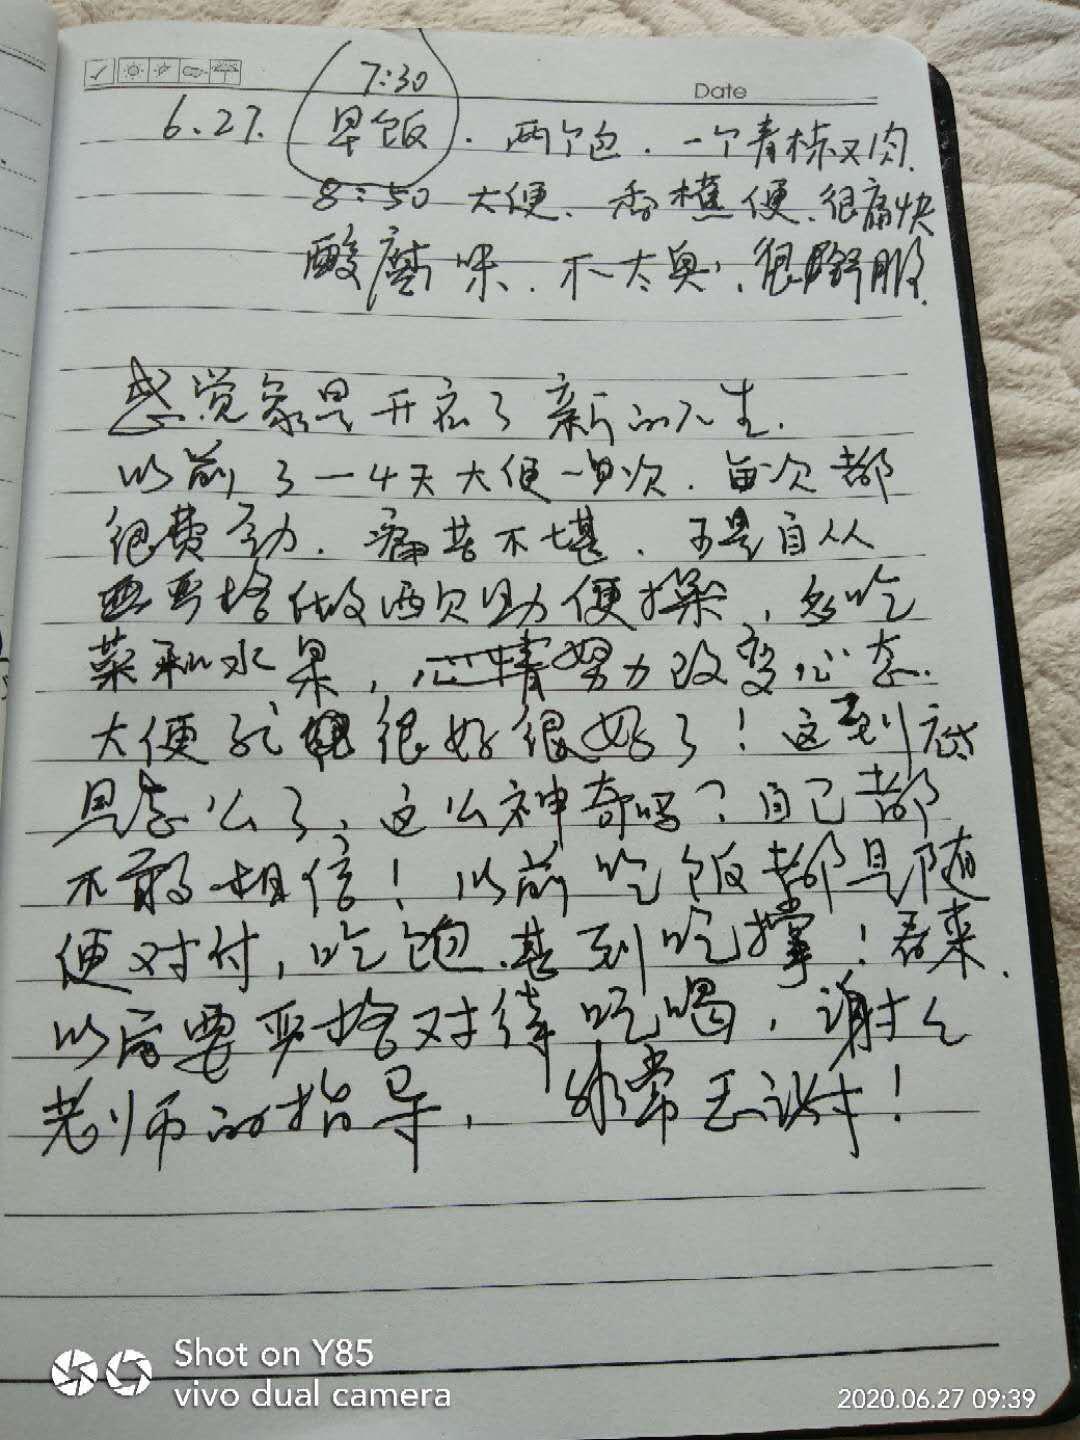 Date
7:30
6.27. 早饭. 两个包. 一个青椒又肉.
8:50 大便. 香蕉便. 很痛快
酸腐味. 不太臭, 很舒服.
感觉象是开启了新的人生.
以前3-4天大便一次. 每次都
很费劲. 痛苦不堪. 可是自从
严格做两次助便操, 多吃
菜和水果, 努力改变心态.
大便就很好很好了! 这到底
是怎么了, 这么神奇吗? 自己都
不敢相信! 以前吃饭都是随
便对付, 吃饱. 甚到吃撑! 看来.
以后要严格对待吃喝, 谢谢
老师的指导, 非常感谢!
Shot on Y85
vivo dual camera
2020.06.27 09:39